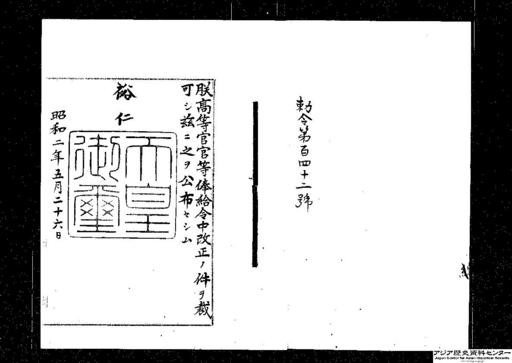 勅令第百四十二號
朕高等官官等俸給令中改正ノ件ヲ裁
可シ茲ニ之ヲ公布セシム
裕仁
天皇
御璽
昭和二年五月二十六日
アジア歴史資料センター
Japan Center for Asian Historical Records